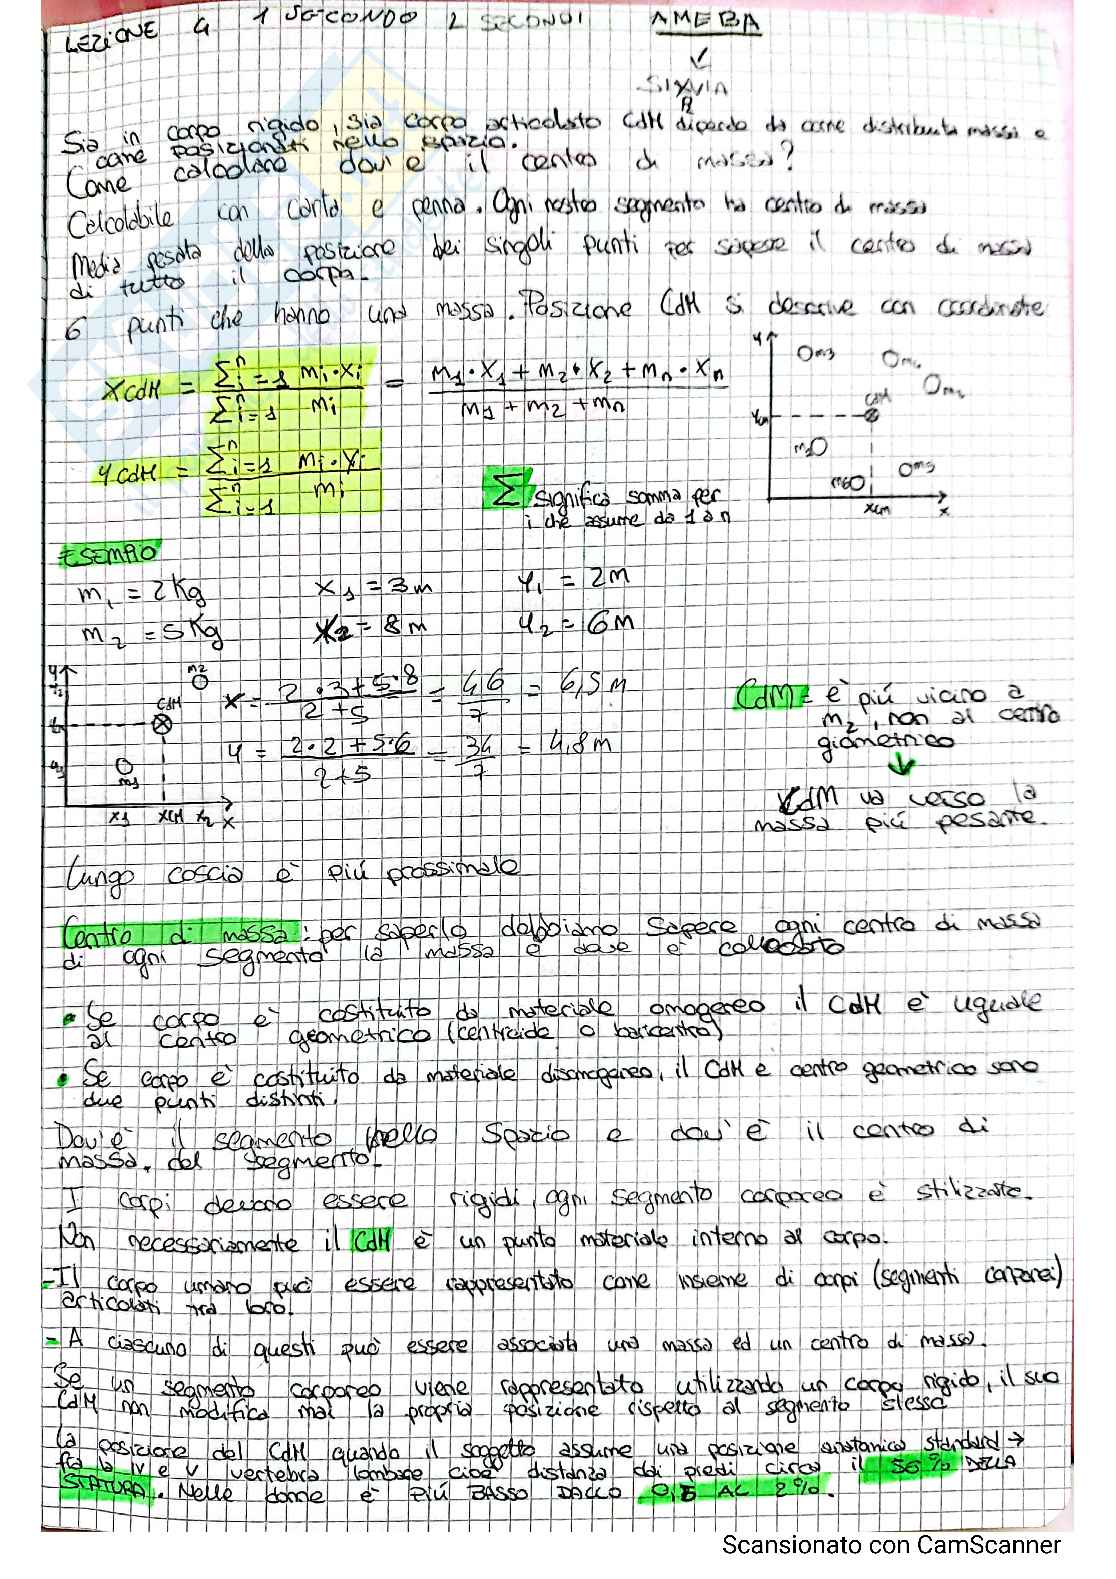 LEZIONE 4 1 SECONDO 2 SECONDI AMEBA
Sia in corpo rigido, sia corpo articolato CdM dipende da come distribuita massa e
come posizionati nello spazio.
Come calcolare dov'è il centro di massa?
Calcolabile con carta e penna. Ogni nostro segmento ha centro di massa
Media pesata della posizione dei singoli punti per sapere il centro di massa
di tutto il corpo.
6 punti che hanno una massa. Posizione CdM si descrive con coordinate
XCdM = Σⁿi=1 mi·xi / Σⁿi=1 mi = m1·x1 + m2·x2 + mn·xn / m1 + m2 + mn
YCdM = Σⁿi=1 mi·yi / Σⁿi=1 mi
Σ significa somma per
i che assume da 1 a n
y m3 m4 m1 CdM ycm m2 m5 m6 xcm x
ESEMPIO
m1 = 2 Kg x1 = 3m y1 = 2m
m2 = 5 Kg x2 = 8m y2 = 6m
y m2 CdM m1 x1 xcm x2 x
x = 2·3+5·8 / 2+5 = 46/7 = 6,5m
y = 2·2+5·6 / 2+5 = 34/7 = 4,8m
CdM = è più vicino a
m2, non al centro
giometrico
↓
CdM va verso la
massa più pesante.
Lungo coscia è più prossimale
Centro di massa: per saperlo dobbiamo sapere ogni centro di massa
di ogni segmento la massa e dove è collocato
• Se corpo è costituito da materiale omogeneo il CdM è uguale
al centro geometrico (centroide o baricentro)
• Se corpo è costituito da materiale disomogeneo, il CdM e centro geometrico sono
due punti distinti.
Dov'è il segmento nello spazio e dov'è il centro di
massa. del segmento.
I corpi devono essere rigidi, ogni segmento corporeo è stilizzato.
Non necessariamente il CdM è un punto materiale interno al corpo.
- Il corpo umano può essere rappresentato come insieme di corpi (segmenti corporei)
articolati tra loro.
- A ciascuno di questi può essere associata una massa ed un centro di massa.
Se un segmento corporeo viene rappresentato utilizzando un corpo rigido, il suo
CdM non modifica mai la propria posizione rispetto al segmento stesso
La posizione del CdM quando il soggetto assume una posizione anatomica standard →
fra la IV e V vertebra lombare cioè distanza dai piedi circa il 56% DELLA
STATURA. Nelle donne è PIÙ BASSO DALLO 0,5 AL 2%.
Scansionato con CamScanner